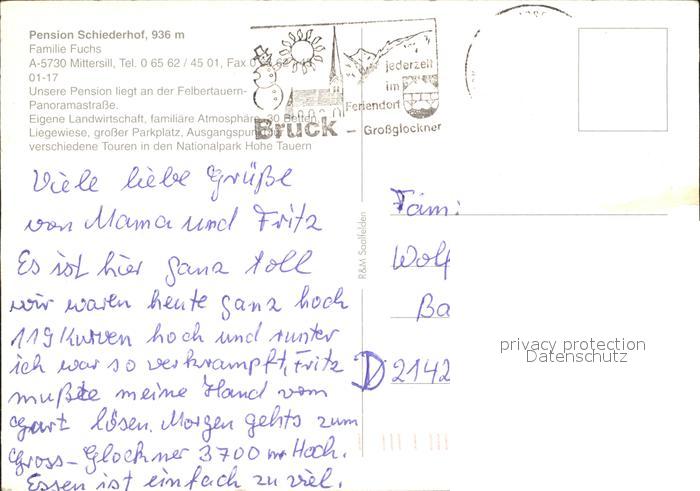 Pension Schiederhof, 936 m
Familie Fuchs
A-5730 Mittersill, Tel. 0 65 62 / 45 01, Fax 0
01-17
Unsere Pension liegt an der Felbertauern-
Panoramastraße.
Eigene Landwirtschaft, familiäre Atmosphäre, 30 Betten,
Liegewiese, großer Parkplatz, Ausgangspunkt für
verschiedene Touren in den Nationalpark Hohe Tauern
jederzeit
im
Feriendorf
Bruck - Großglockner
Viele liebe Grüße
von Mama und Fritz
Es ist hier ganz toll
wir waren heute ganz hoch
119 Kurven hoch und runter
ich war so verkrampft, Fritz
mußte meine Hand vom
gurt lösen. Morgen gehts zum
Gross-Glockner 3700 m Hoch.
Essen ist einfach zu viel.
R&M Saalfelden
Fam:
Wolf
Ba
D 2142
privacy protection
Datenschutz